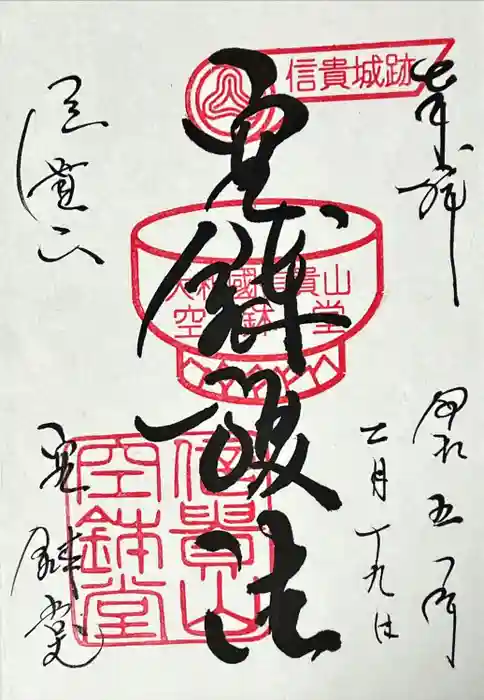 奉拝
令和五年
二月十九日
信貴城跡
空鉢護法
大和國信貴山
空鉢堂
信貴山
空鉢堂
信貴山
空鉢堂